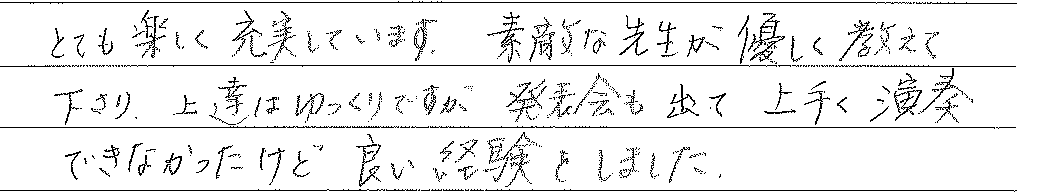 とても楽しく充実しています。素敵な先生が優しく教えて
下さり、上達はゆっくりですが発表会も出て上手く演奏
できなかったけど良い経験をしました。